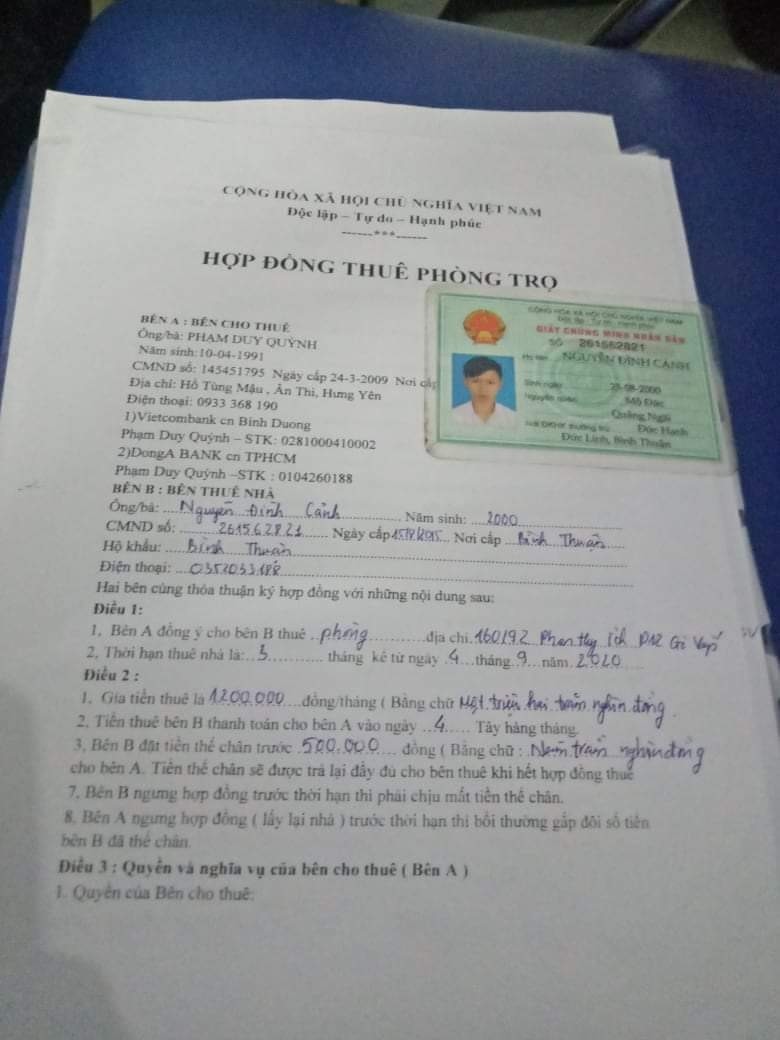 CỘNG HÒA XÃ HỘI CHỦ NGHĨA VIỆT NAM
Độc lập – Tự do – Hạnh phúc
------***------
HỢP ĐỒNG THUÊ PHÒNG TRỌ
BÊN A : BÊN CHO THUÊ
Ông/bà: PHẠM DUY QUỲNH
Năm sinh:10-04-1991
CMND số: 145451795 Ngày cấp 24-3-2009 Nơi cấp
Địa chỉ: Hồ Tùng Mậu , Ân Thi, Hưng Yên
Điện thoại: 0933 368 190
1)Vietcombank cn Bình Duong
Phạm Duy Quỳnh - STK: 0281000410002
2)DongA BANK cn TPHCM
Phạm Duy Quỳnh –STK : 0104260188
CỘNG HÒA XÃ HỘI CHỦ NGHĨA VIỆT NAM
Độc lập - Tự do - Hạnh phúc
GIẤY CHỨNG MINH NHÂN DÂN
SỐ 261562821
Họ tên NGUYỄN ĐÌNH CẢNH
Sinh ngày 23-08-2000
Nguyên quán Mộ Đức
Quảng Ngãi
Nơi ĐKHK thường trú Đức Hạnh
Đức Linh, Bình Thuận
BÊN B : BÊN THUÊ NHÀ
Ông/bà: Nguyễn Đình Cảnh Năm sinh: 2000
CMND số: 261562821 Ngày cấp Nơi cấp Bình Thuận
Hộ khẩu: Bình Thuận
Điện thoại: 0352033188
Hai bên cùng thỏa thuận ký hợp đồng với những nội dung sau:
Điều 1:
1, Bên A đồng ý cho bên B thuê phòng địa chỉ. 160/92 Phan Huy Ích P12 Gò Vấp
2, Thời hạn thuê nhà là: 3 tháng kể từ ngày 4 tháng 9 năm 2020
Điều 2 :
1. Gía tiền thuê là 1200.000 đồng/tháng ( Bằng chữ Một triệu hai trăm nghìn đồng.
2. Tiền thuê bên B thanh toán cho bên A vào ngày 4 Tây hàng tháng.
3, Bên B đặt tiền thế chân trước 500.000 đồng ( Bằng chữ : Năm trăm nghìn đồng
cho bên A. Tiền thế chân sẽ được trả lại đầy đủ cho bên thuê khi hết hợp đồng thuê
7. Bên B ngưng hợp đồng trước thời hạn thì phải chịu mất tiền thế chân.
8. Bên A ngưng hợp đồng ( lấy lại nhà ) trước thời hạn thì bồi thường gấp đôi số tiền
bên B đã thế chân.
Điều 3 : Quyền và nghĩa vụ của bên cho thuê ( Bên A )
1. Quyền của Bên cho thuê: